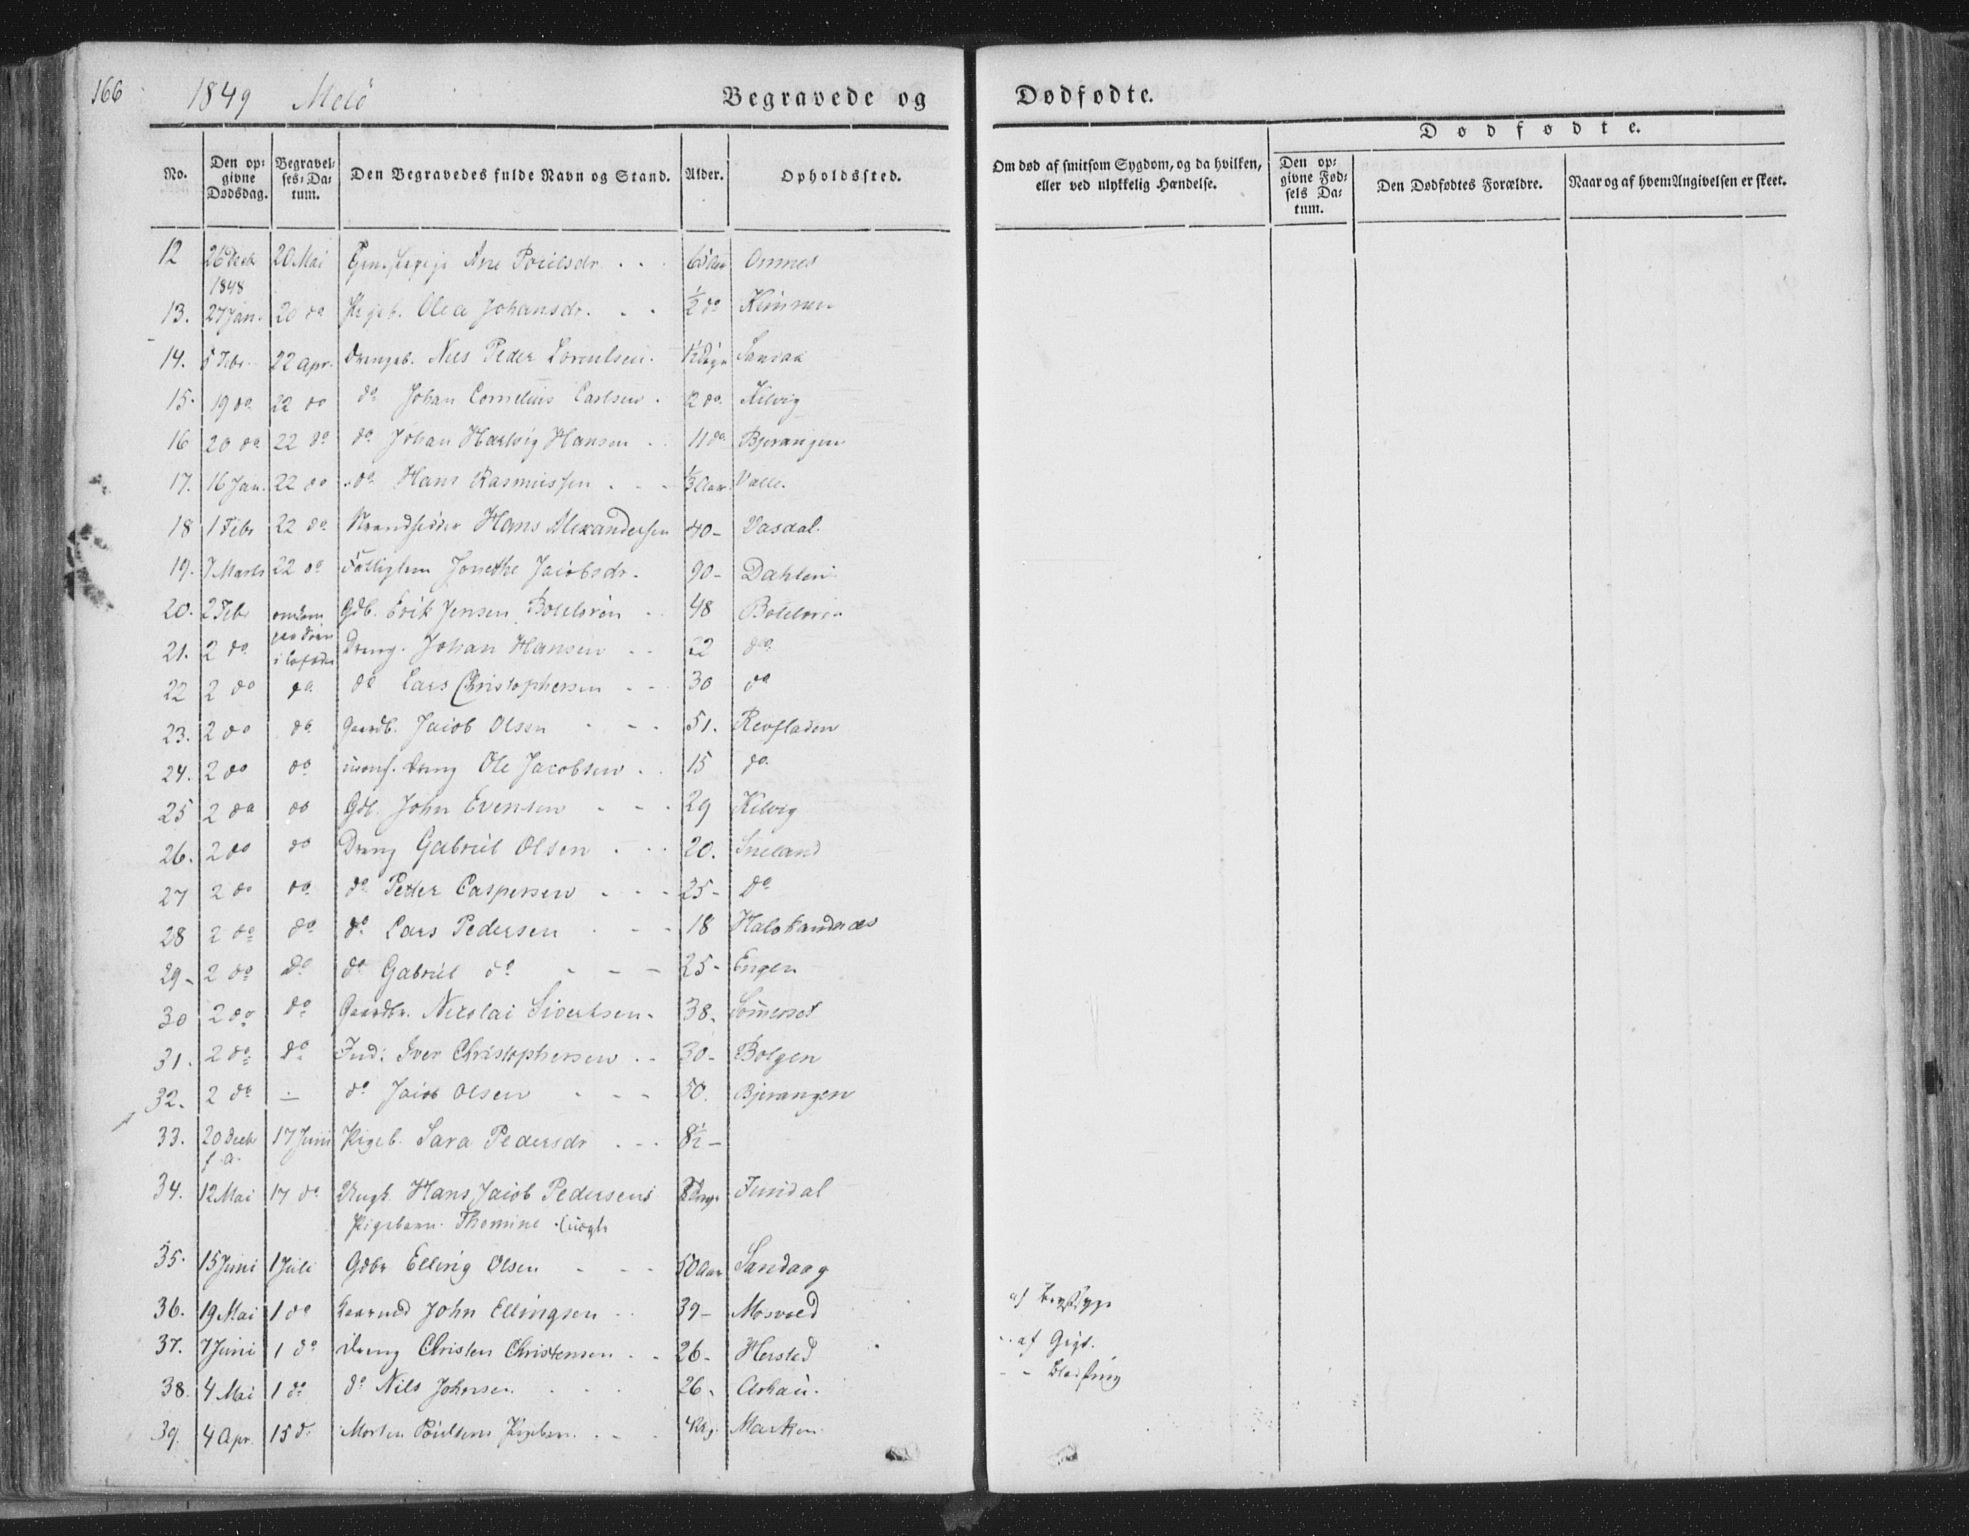 166
1849 Melö
Begravede og Dødfødte.
Dødfødte.
No. Den opgivne Dødsdag. Begravelses-Datum. Den Begravedes fulde Navn og Stand. Alder. Opholdssted. Om død af smitsom Sygdom, og da hvilken, eller ved ulykkelig Hændelse. Den opgivne Fødsels Datum. Den Dødfødtes Forældre. Naar og af hvem Angivelsen er skeet.
12 26 Decb 1848 20 Mai Ane Poulsdr 65 Aar Onnes
13. 27 Jan. 20 do Pigeb. Olea Johansdr. ½ do
14. 5 Febr. 22 Apr. Drengeb. Nils Peder Sandaa
15. 19 do 22 do do Johan Cornelius Carlsen 12 do Kilvig
16 20 do 22 do do Johan Hartvig Hansen 11 do Bjerangen
17. 16 Jan. 22 do do Hans Rasmussen ⅓ Aar Valle.
18 1 Febr 22 do Strandsidder Hans Alexandersen 40 – Vasdal.
19. 7 Marts 22 do Fattiglem Jonethe Jacobsdr. 90 – Dahlen
20. 2 Febr omkom paa Søen i Lofoden Gdb. Erik Jensen 48
21. 2 do Dreng. Johan Hansen 22 do
22 2 do do do Lars Christophersen 30 do
23. 2 do do Gaardb. Jacob Olsen 51. Revfladen
24. 2 do do uconf. Dreng Ole Jacobsen 15 do
25 2 do do Gdb. John Evensen 29 Kilvig
26. 2 do do Dreng Gabriel Olsen 20. Sneland
27 2 do do do Petter Caspersen 25 – do
28 2 do do do Lars Pedersen 18 Halsosandnæs
29 – 2 do do do Gabriel do 25 – Engen
30 2 do do Gaardbr. Nicolai Sivertsen 38 – Sömerset
31. 2 do do Ind: Iver Christophersen 30 – Bolgen
32. 2 do – do Jacob Olsen 50. Bjerangen
33. 20 Decbr f. a. 17 Juni Pigeb. Sara Pedersdr 8½ –
34. 12 Mai 17 do Hans Jacob Pedersens
Pigebarn Thomine
35. 15 Juni 1 Juli Gdbr Elling Olsen 50 Aar Sandaag
36. 19 Mai 1 do John Ellingsen 39 – Mosvold af Brystsyge
37. 7 Juni 1 do Dreng Christen Christensen 26 – Hersted af Gigt.
38. 4 Mai 1 do do Nils Johnsen 26 –
39. 4 Apr. 15 do Morten Poulsens Pigebarn